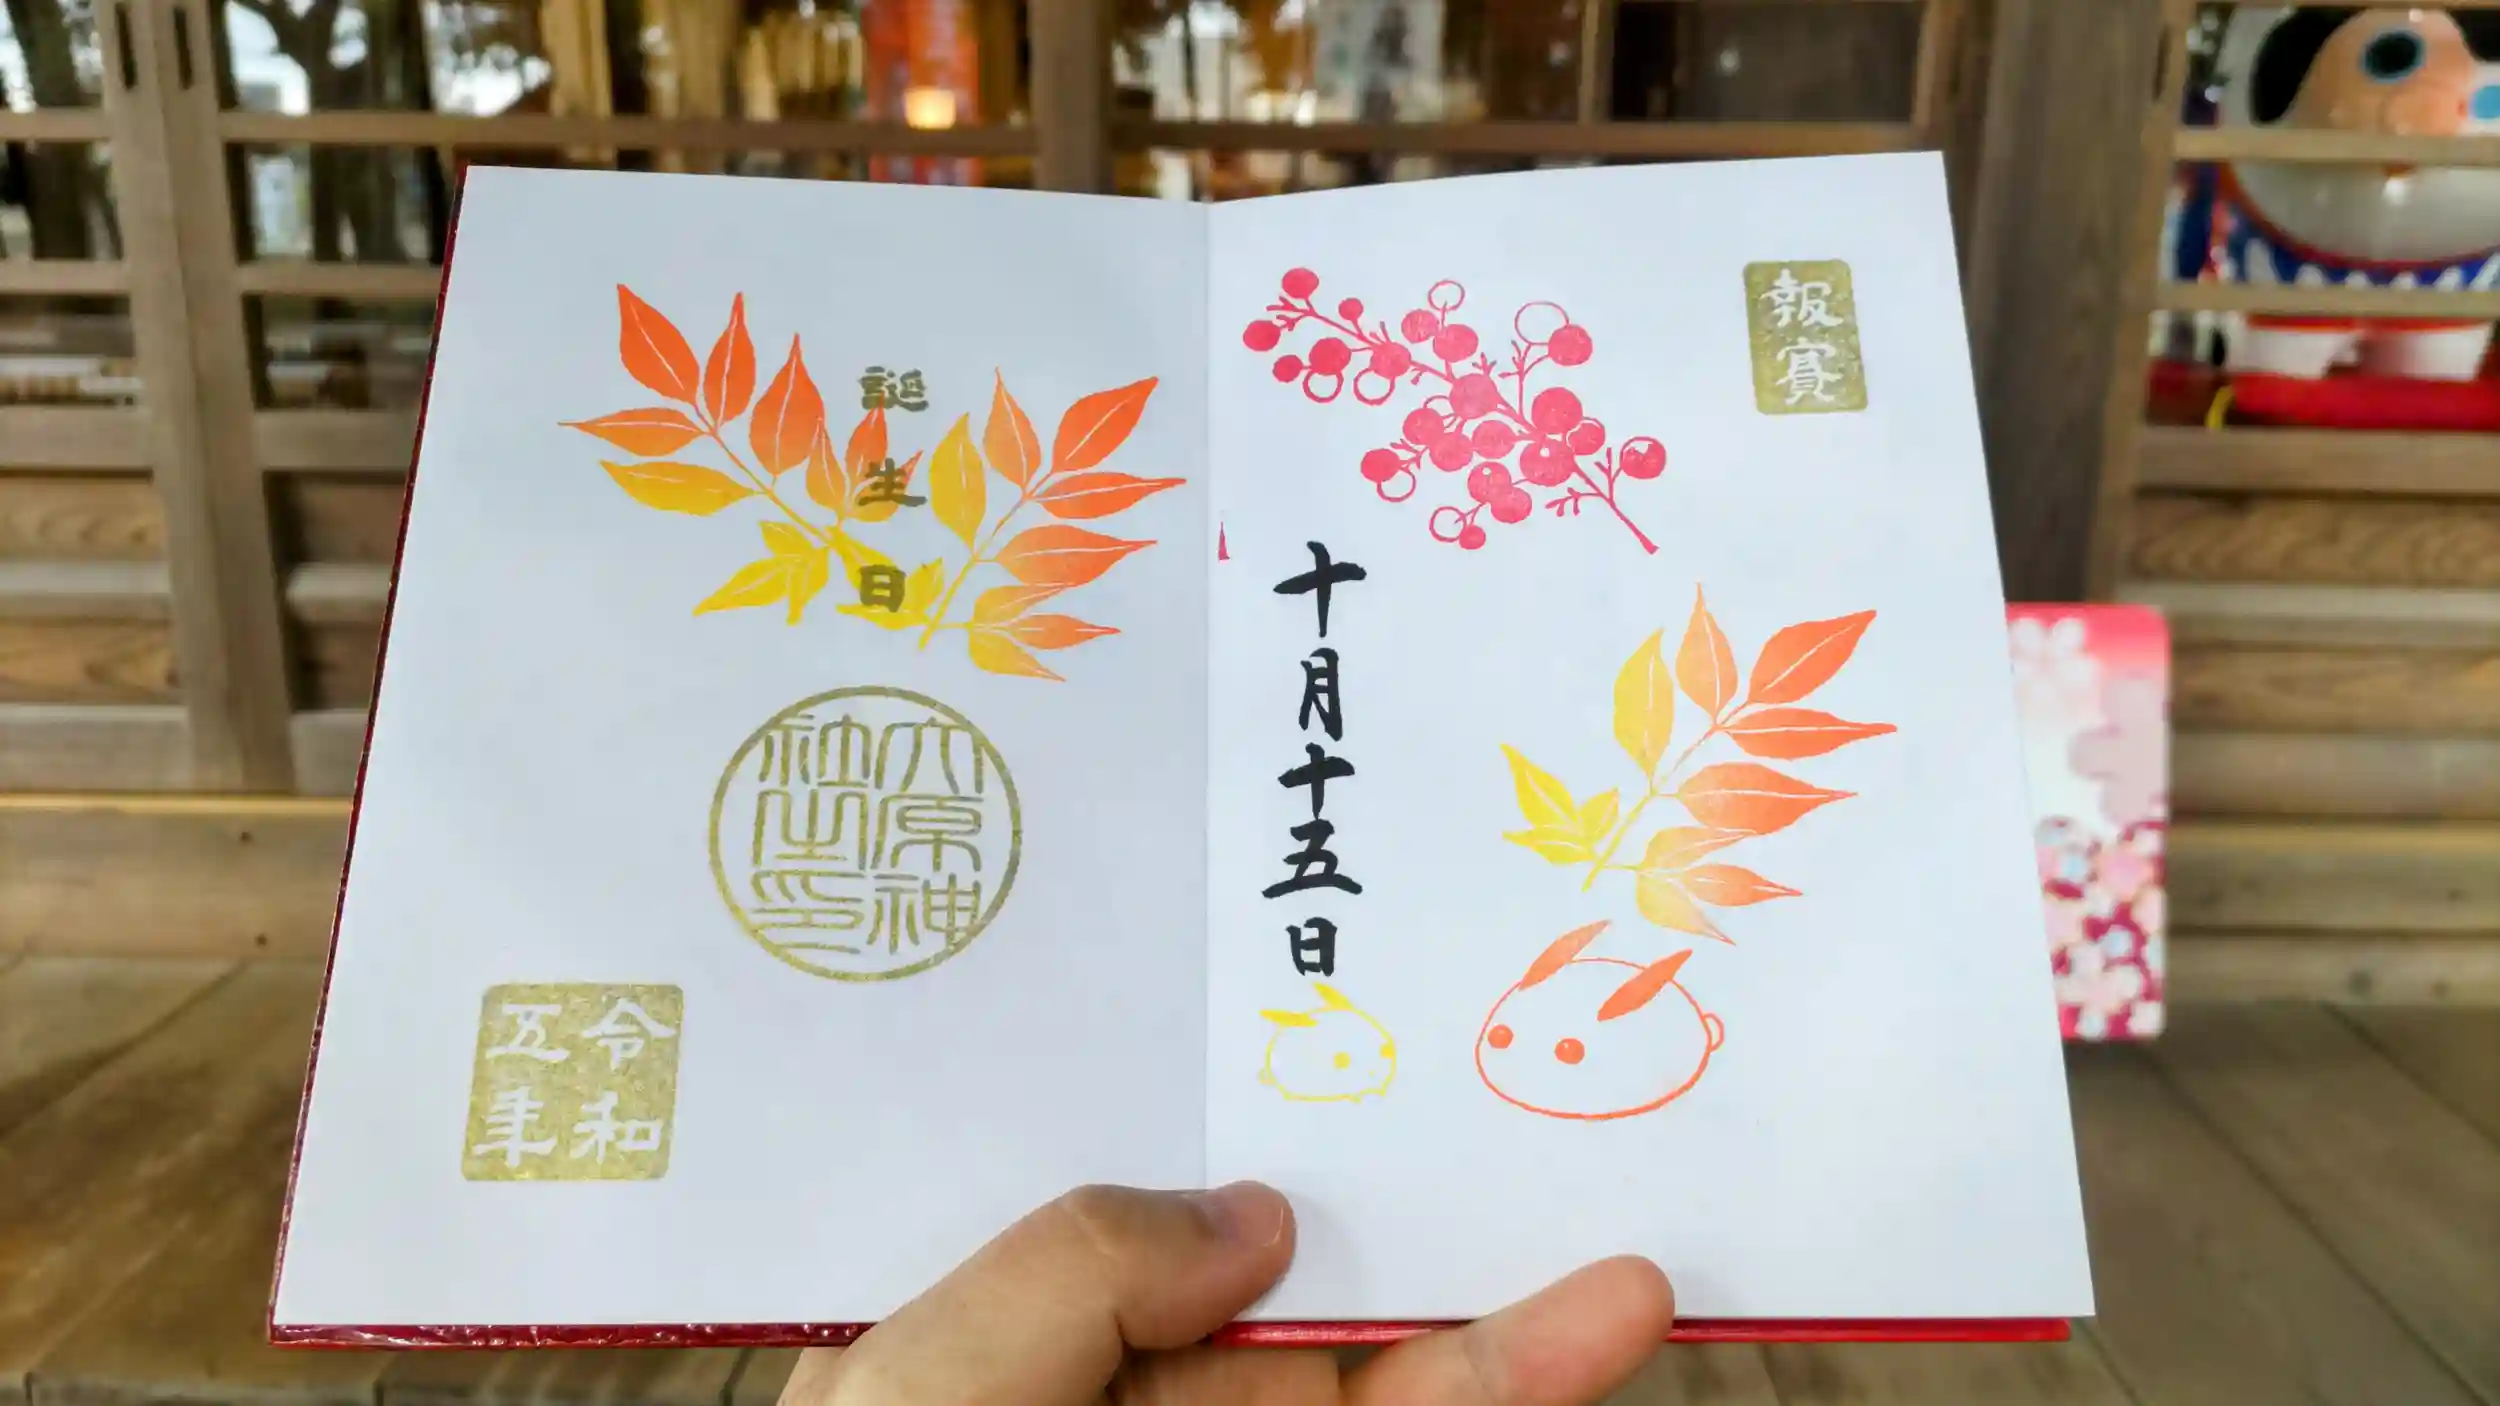 報賽
十月十五日
誕生日
六原神
社之印
令和
五年